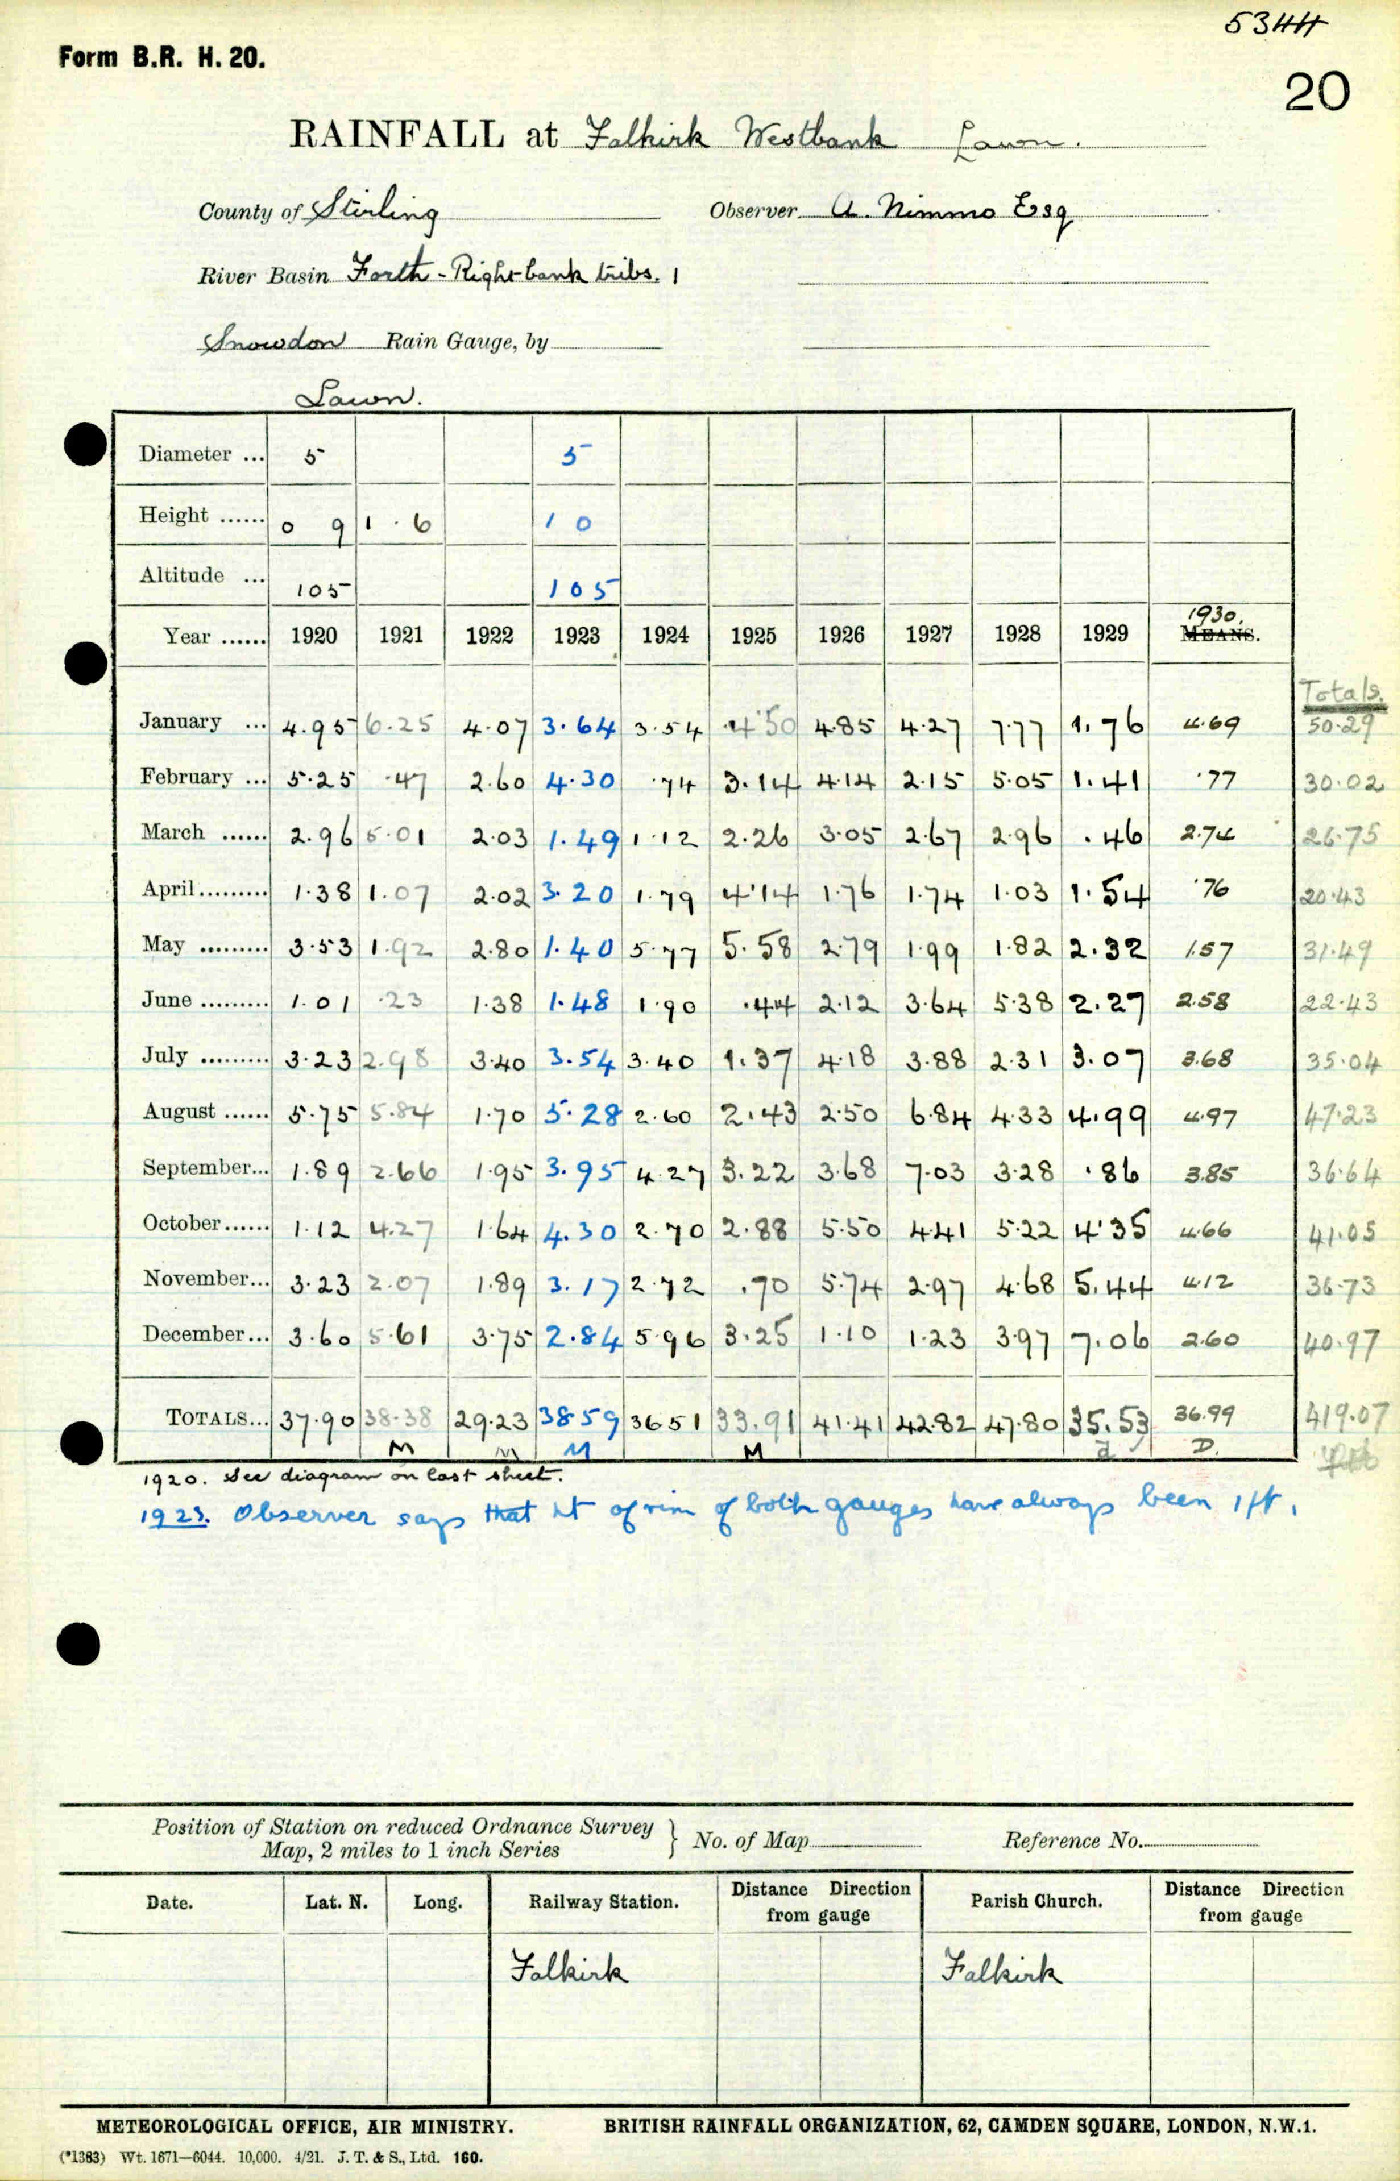 5344
Form B.R. H. 20.
20
RAINFALL at Falkirk Westbank Lawn.
County of Stirling Observer A. Nimmo Esq
River Basin Forth - Right bank tribs. 1
Snowdon Rain Gauge, by
Lawn.
Diameter ... 5 5
Height ...... 0 9 1 . 6 1 0
Altitude ... 105 105
Year ...... 1920 1921 1922 1923 1924 1925 1926 1927 1928 1929 1930. MEANS.
Totals.
January ... 4.95 6.25 4.07 3.64 3.54 4.50 4.85 4.27 7.77 1.76 4.69 50.29
February ... 5.25 .47 2.60 4.30 .74 3.14 4.14 2.15 5.05 1.41 .77 30.02
March ...... 2.96 5.01 2.03 1.49 1.12 2.26 3.05 2.67 2.96 .46 2.74 26.75
April......... 1.38 1.07 2.02 3.20 1.79 4.14 1.76 1.74 1.03 1.54 .76 20.43
May ......... 3.53 1.92 2.80 1.40 5.77 5.58 2.79 1.99 1.82 2.32 1.57 31.49
June ......... 1.01 .23 1.38 1.48 1.90 .44 2.12 3.64 5.38 2.27 2.58 22.43
July ......... 3.23 2.98 3.40 3.54 3.40 1.37 4.18 3.88 2.31 3.07 3.68 35.04
August ...... 5.75 5.84 1.70 5.28 2.60 2.43 2.50 6.84 4.33 4.99 4.97 47.23
September... 1.89 2.66 1.95 3.95 4.27 3.22 3.68 7.03 3.28 .86 3.85 36.64
October...... 1.12 4.27 1.64 4.30 2.70 2.88 5.50 4.41 5.22 4.35 4.66 41.05
November... 3.23 2.07 1.89 3.17 2.72 .70 5.74 2.97 4.68 5.44 4.12 36.73
December... 3.60 5.61 3.75 2.84 5.96 3.25 1.10 1.23 3.97 7.06 2.60 40.97
TOTALS... 37.90 38.38 29.23 38 59 36 51 33.91 41.41 42.82 47.80 35.53 36.99 419.07
M M M M d D.
1920. See diagram on last sheet.
1923. Observer says that ht of rim of both gauges have always been 1 ft.
Position of Station on reduced Ordnance Survey
Map, 2 miles to 1 inch Series } No. of Map Reference No.
Date. Lat. N. Long. Railway Station. Distance Direction from gauge Parish Church. Distance Direction from gauge
Falkirk Falkirk
METEOROLOGICAL OFFICE, AIR MINISTRY. BRITISH RAINFALL ORGANIZATION, 62, CAMDEN SQUARE, LONDON, N.W.1.
(*1383) Wt. 1671—6044. 10,000. 4/21. J. T. & S., Ltd. 160.